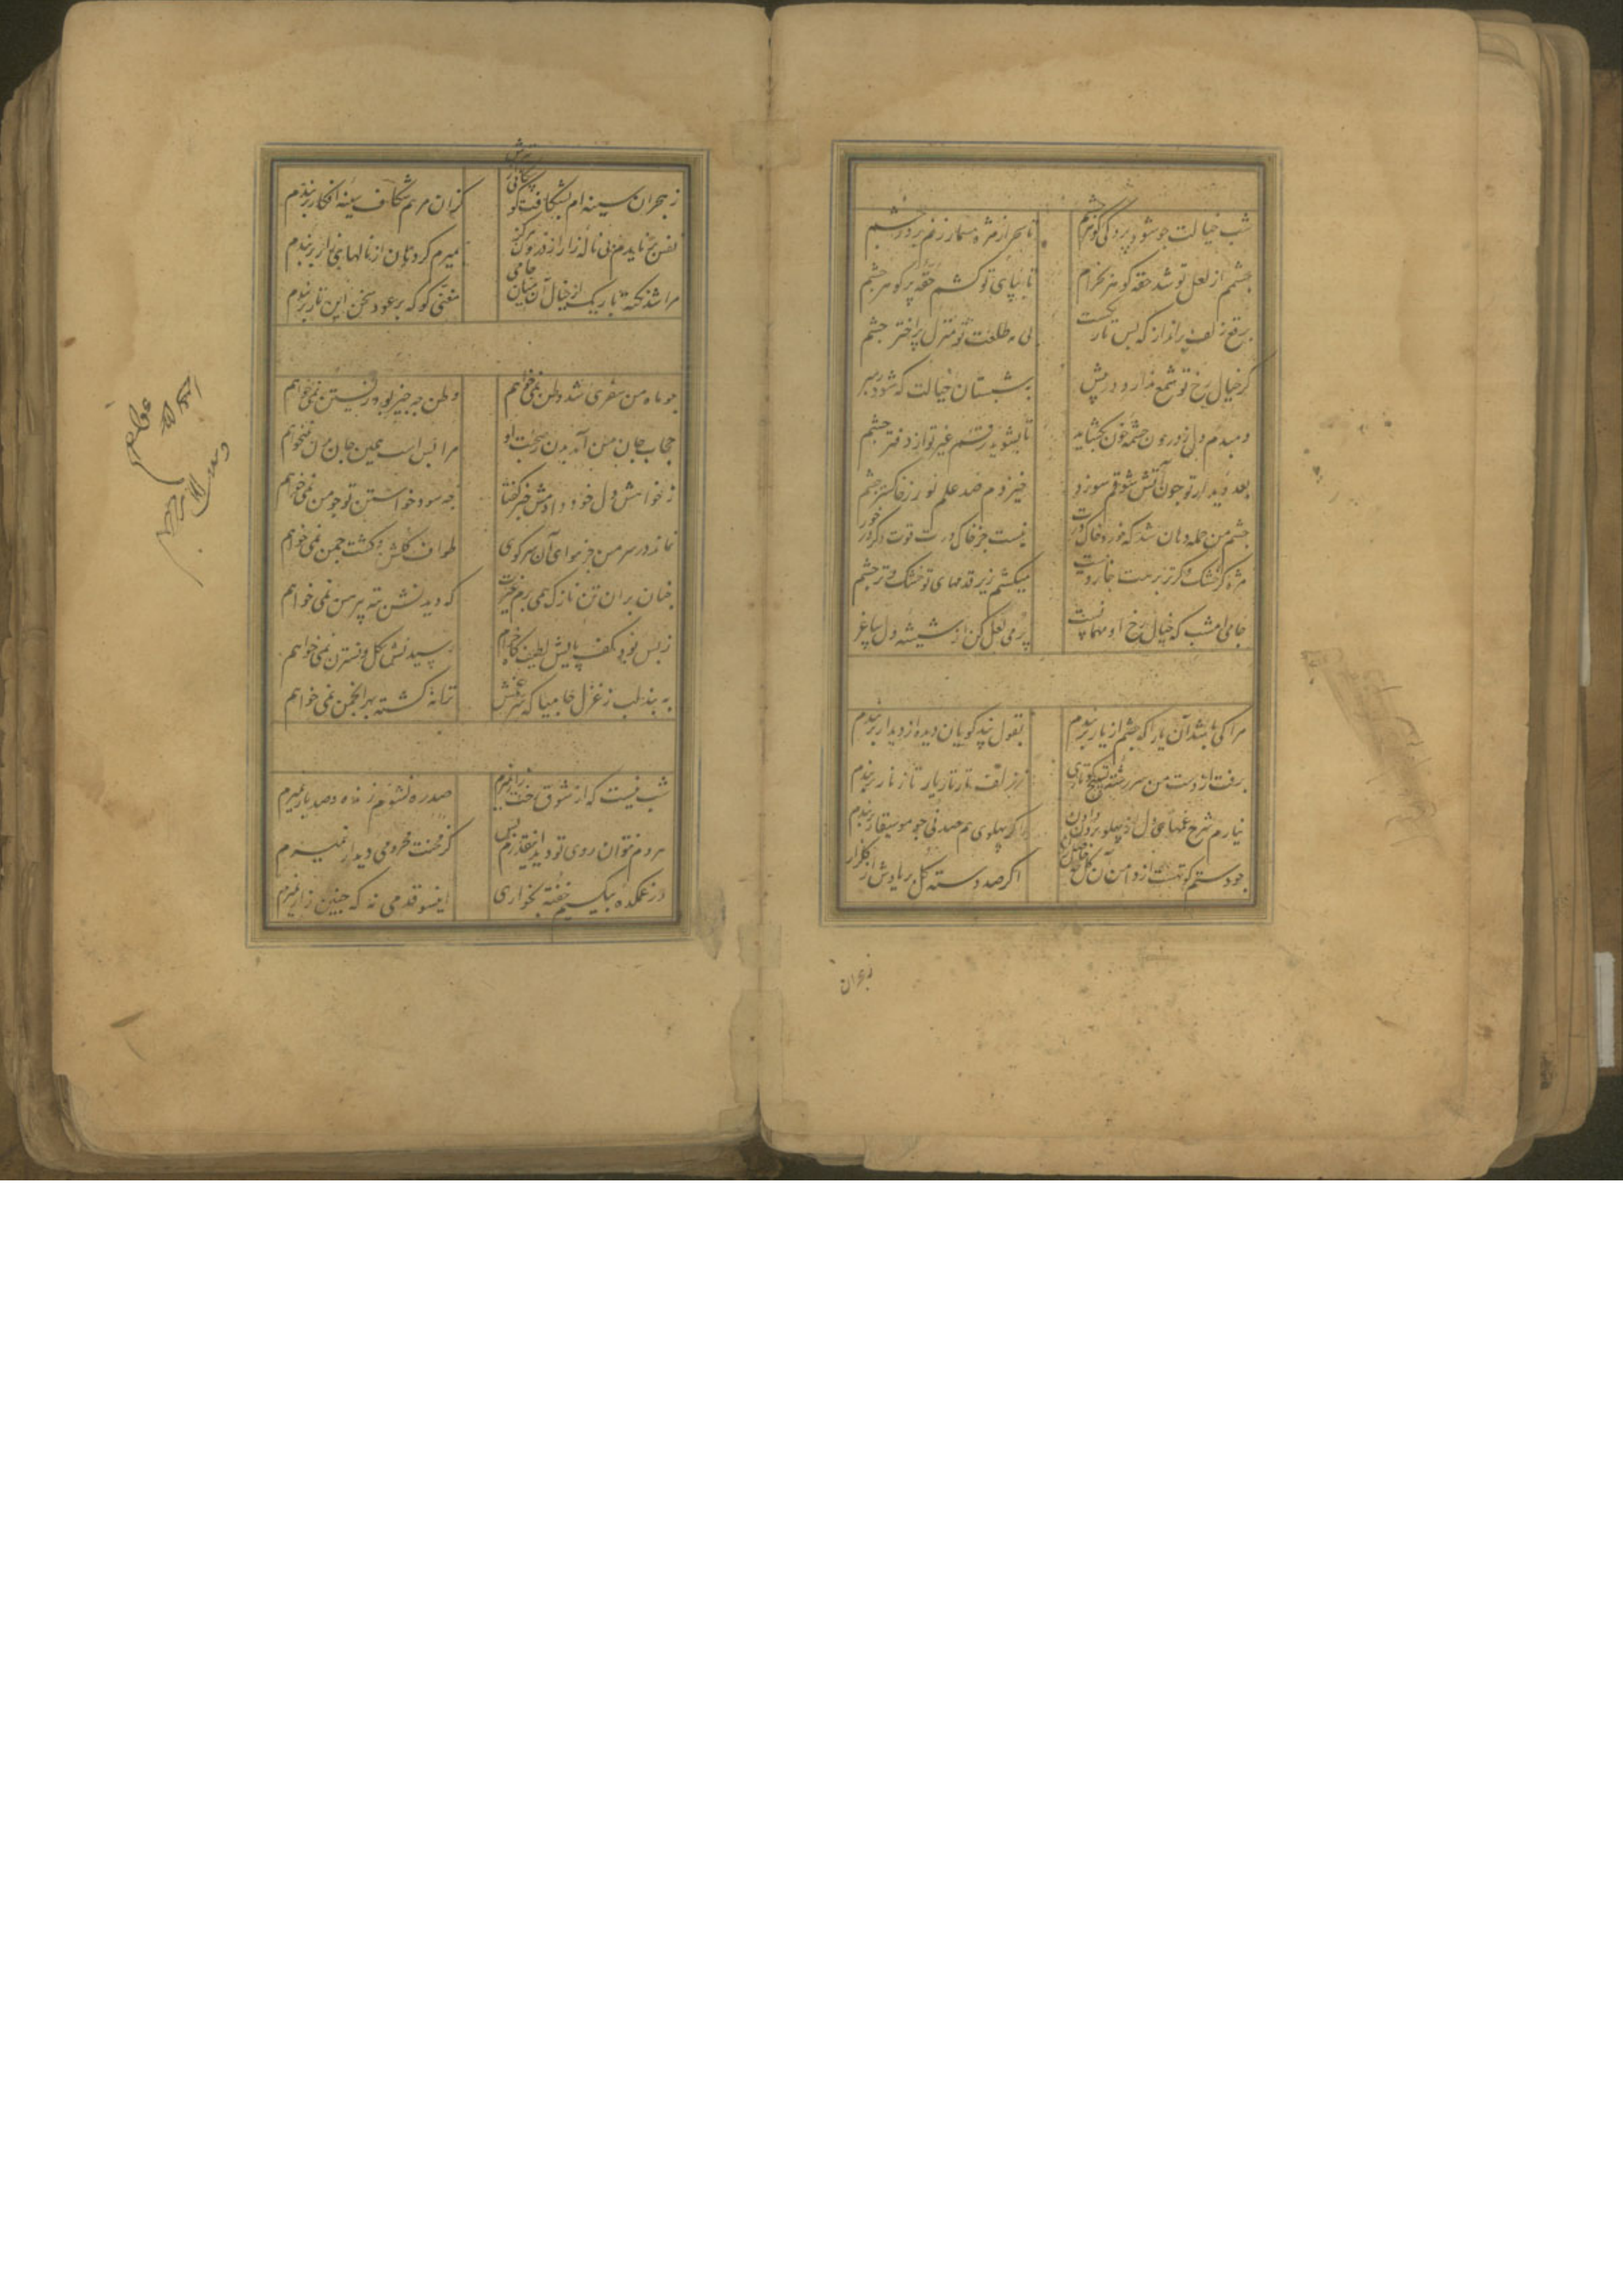 شب خیالت جو شود پردگی کوهر چشم
تا سحر از مژه مسمار زنم بر در چشم
چشمم از لعل تو شد حقه کوهر بخرام
تا بپای تو کشم حقه پر کوهر چشم
برقع زلف برانداز که بس تار
بی مه طلعت تو منزل پر اختر چشم
کر خیال رخ تو شمع ندارد در پیش
بشبستان خیالت که شود رهبر
دمبدم دل ز درون چشمه خون بکشاید
تا بشوید رقم غیر تو از دفتر چشم
بعد دیدار تو جون آتش شوقم سوزد
خیزدم صد علم نور ز خاکستر چشم
چشم من جمله دهان شد که خورد خاک درت
نیست جز خاک درت قوت دکر در خور
مژه کر خشک و کر تر بر هت جاروبیست
میکشم زیر قدمهای تو خشک و تر چشم
جامی امشب که خیال رخ او مهمانست
پر می لعل کن از شیشه دل ساغر
مرا کی باشد آن یارا که چشم از یار بربندم
بقول پند کویان دیده از دیدار بربندم
برفت از دست من سر رشته تسبیح
ز زلف تار تار یار تا زنار بربندم
نیارم شرح غمهای دل از پهلو برون دادن
اکر پهلوی هم صد نی جو موسیقار بربندم
جو دستم کوتهست از دامن آن کل
اکر صد دسته کل بر یادش از کلزار
ز هجران
ز هجران سینه ام بشکافت کو
کزان مرهم شکاف سینه افکار بربندم
نفس برنایدم بی ناله زار از درون
بمیرم کر دهان از نالهای زار بربندم
مرا شد نکته باریک از خیال آن میان جامی
مغنی کو که بر عود سخن این تار بربندم
جو ماه من سفری شد وطن نمی خواهم
وطن جه جیز بود زیستن نمی خواهم
حجاب جان من آمد بدن ز صحبت او
مرا بس است همین جان بدن نمیخواهم
ز خواهش دل خود دادمش خبر کفتا
جه سود خواستن تو جو من نمی خواهم
نماند در سر من جز هوای آن سر کوی
طواف کلشن و کشت جمن نمی خواهم
جنان بران تن نازک همی برم غیرت
که دیدنش ته پیرهن نمی خواهم
ز بس بود کف پایش لطیف کاه خرام
بپیش کل و نسترن نمی خواهم
به بند لب ز غزل جامیا که شعر خوش
ترانه کشته بهر انجمن نمی خواهم
شب نیست که از شوق رخت زار نمیرم
صدره نشوم زنده و صد بار نمیرم
هر دم نتوان روی تو دید اینقدرم بس
کز محنت محرومی دیدار نمیرم
در غمکده بیکسیم خفته بخواری
اینسو قدمی نه که جنین زار نمیرم